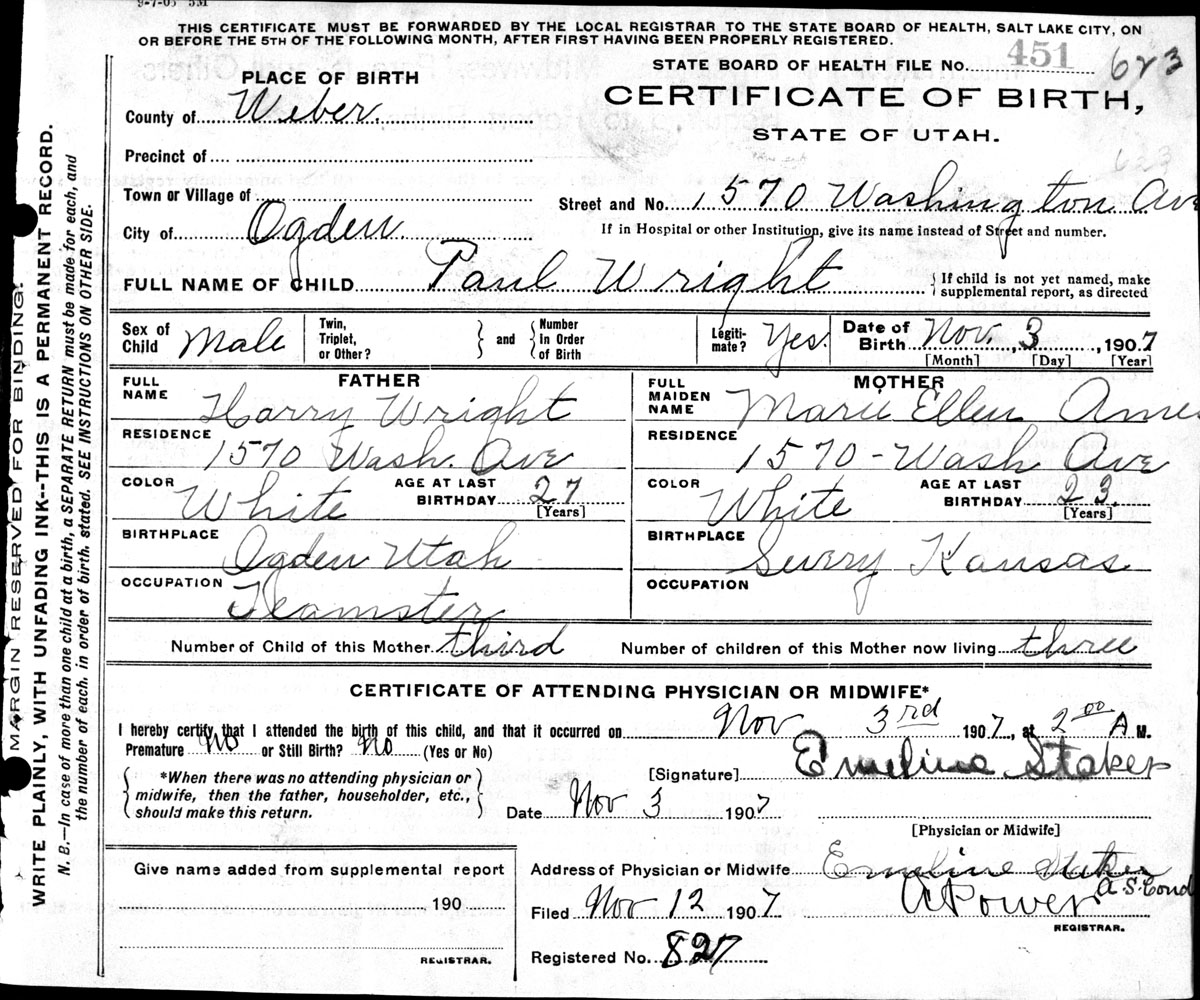 9-7-05 5M
THIS CERTIFICATE MUST BE FORWARDED BY THE LOCAL REGISTRAR TO THE STATE BOARD OF HEALTH, SALT LAKE CITY, ON
OR BEFORE THE 5TH OF THE FOLLOWING MONTH, AFTER FIRST HAVING BEEN PROPERLY REGISTERED.
STATE BOARD OF HEALTH FILE No. 451 623
PLACE OF BIRTH
CERTIFICATE OF BIRTH,
STATE OF UTAH.
623
County of Weber.
Precinct of
Town or Village of
Street and No. 1570 Washington Ave
City of Ogden
If in Hospital or other Institution, give its name instead of Street and number.
FULL NAME OF CHILD Paul Wright {If child is not yet named, make
supplemental report, as directed
Sex of Child Male
Twin, Triplet, or Other? } and {Number In Order of Birth
Legiti-mate? Yes.
Date of Birth Nov. 3, 1907
[Month] [Day] [Year]
FATHER
FULL NAME Harry Wright
RESIDENCE 1570 Wash. Ave
COLOR White AGE AT LAST BIRTHDAY 27 [Years]
BIRTHPLACE Ogden Utah
OCCUPATION Teamster
MOTHER
FULL MAIDEN NAME Marie Ellen Ame
RESIDENCE 1570 - Wash Ave
COLOR White AGE AT LAST BIRTHDAY 23. [Years]
BIRTHPLACE Kansas
OCCUPATION
Number of Child of this Mother third Number of children of this Mother now living three
CERTIFICATE OF ATTENDING PHYSICIAN OR MIDWIFE*
I hereby certify that I attended the birth of this child, and that it occurred on Nov 3rd 1907, at 2 00 A M.
Premature No or Still Birth? No (Yes or No)
*When there was no attending physician or
midwife, then the father, householder, etc.,
should make this return.
[Signature] Emeline Staker
Date Nov 3 1907
[Physician or Midwife]
Give name added from supplemental report
190
REGISTRAR.
Address of Physician or Midwife Emeline Staker
Filed Nov 12 1907 A Power
REGISTRAR.
Registered No. 827
MARGIN RESERVED FOR BINDING!
WRITE PLAINLY, WITH UNFADING INK--THIS IS A PERMANENT RECORD.
N. B.—In case of more than one child at a birth, a SEPARATE RETURN must be made for each, and
the number of each, in order of birth, stated. SEE INSTRUCTIONS ON OTHER SIDE.